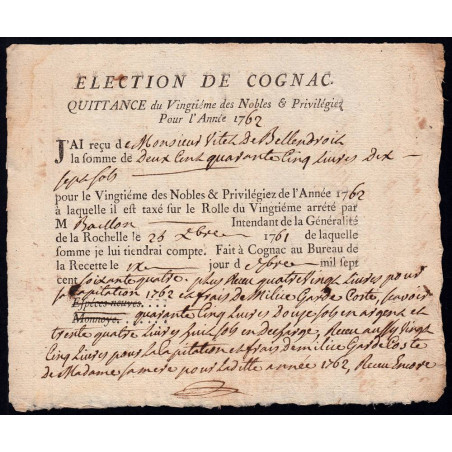 ELECTION DE COGNAC.
QUITTANCE du Vingtiéme des Nobles & Privilégiez
Pour l'Année 1762
J'AI reçu de Monsieur Vitet De Bellendroit
la somme de Deux Cent quarante Cinq Livres Dix
sept sols
pour le Vingtiéme des Nobles & Privilégiez de l'Année 1762
à laquelle il est taxé sur le Rolle du Vingtiéme arrété par
M Baillon Intendant de la Généralité
de la Rochelle le 26 xbre 1761 de laquelle
somme je lui tiendrai compte. Fait à Cognac au Bureau de
la Recette le jour d' xbre mil sept
cent Soixante quatre, plus Receu quatre Vingt Livres pour
la Capitation 1762 et frais de Milice Garde Coste, scavoir
Espéces neuves.
Monnoye. quarante Cinq Livres Douze sols en argent et
trente quatre Livres huit sols en Decharge, Receu aussy Vingt
Cinq Livres pour la Capitation et frais de milice Garde Coste
de Madame sa mere pour la ditte année 1762, Receu Encore